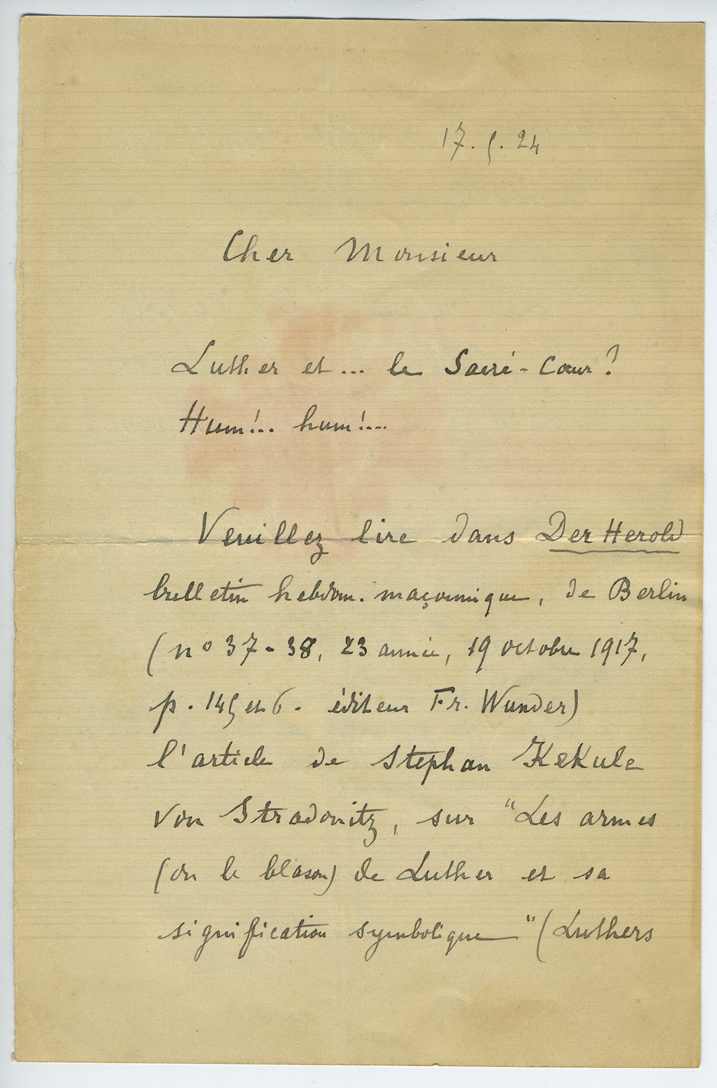 17. 5. 24
Cher Monsieur
Luther et ... le Sacré-Cœur?
Hum!.. hum!...
Veuillez lire dans Der Herold
bulletin hebdom. maçonnique, de Berlin
(nº 37-38, 23 année, 19 octobre 1917,
p. 145 et 6 - éditeur Fr. Wunder)
l'article de Stephan Kekule
von Stradonitz, sur "Les armes
(ou le blason) de Luther et sa
signification symbolique" (Luthers